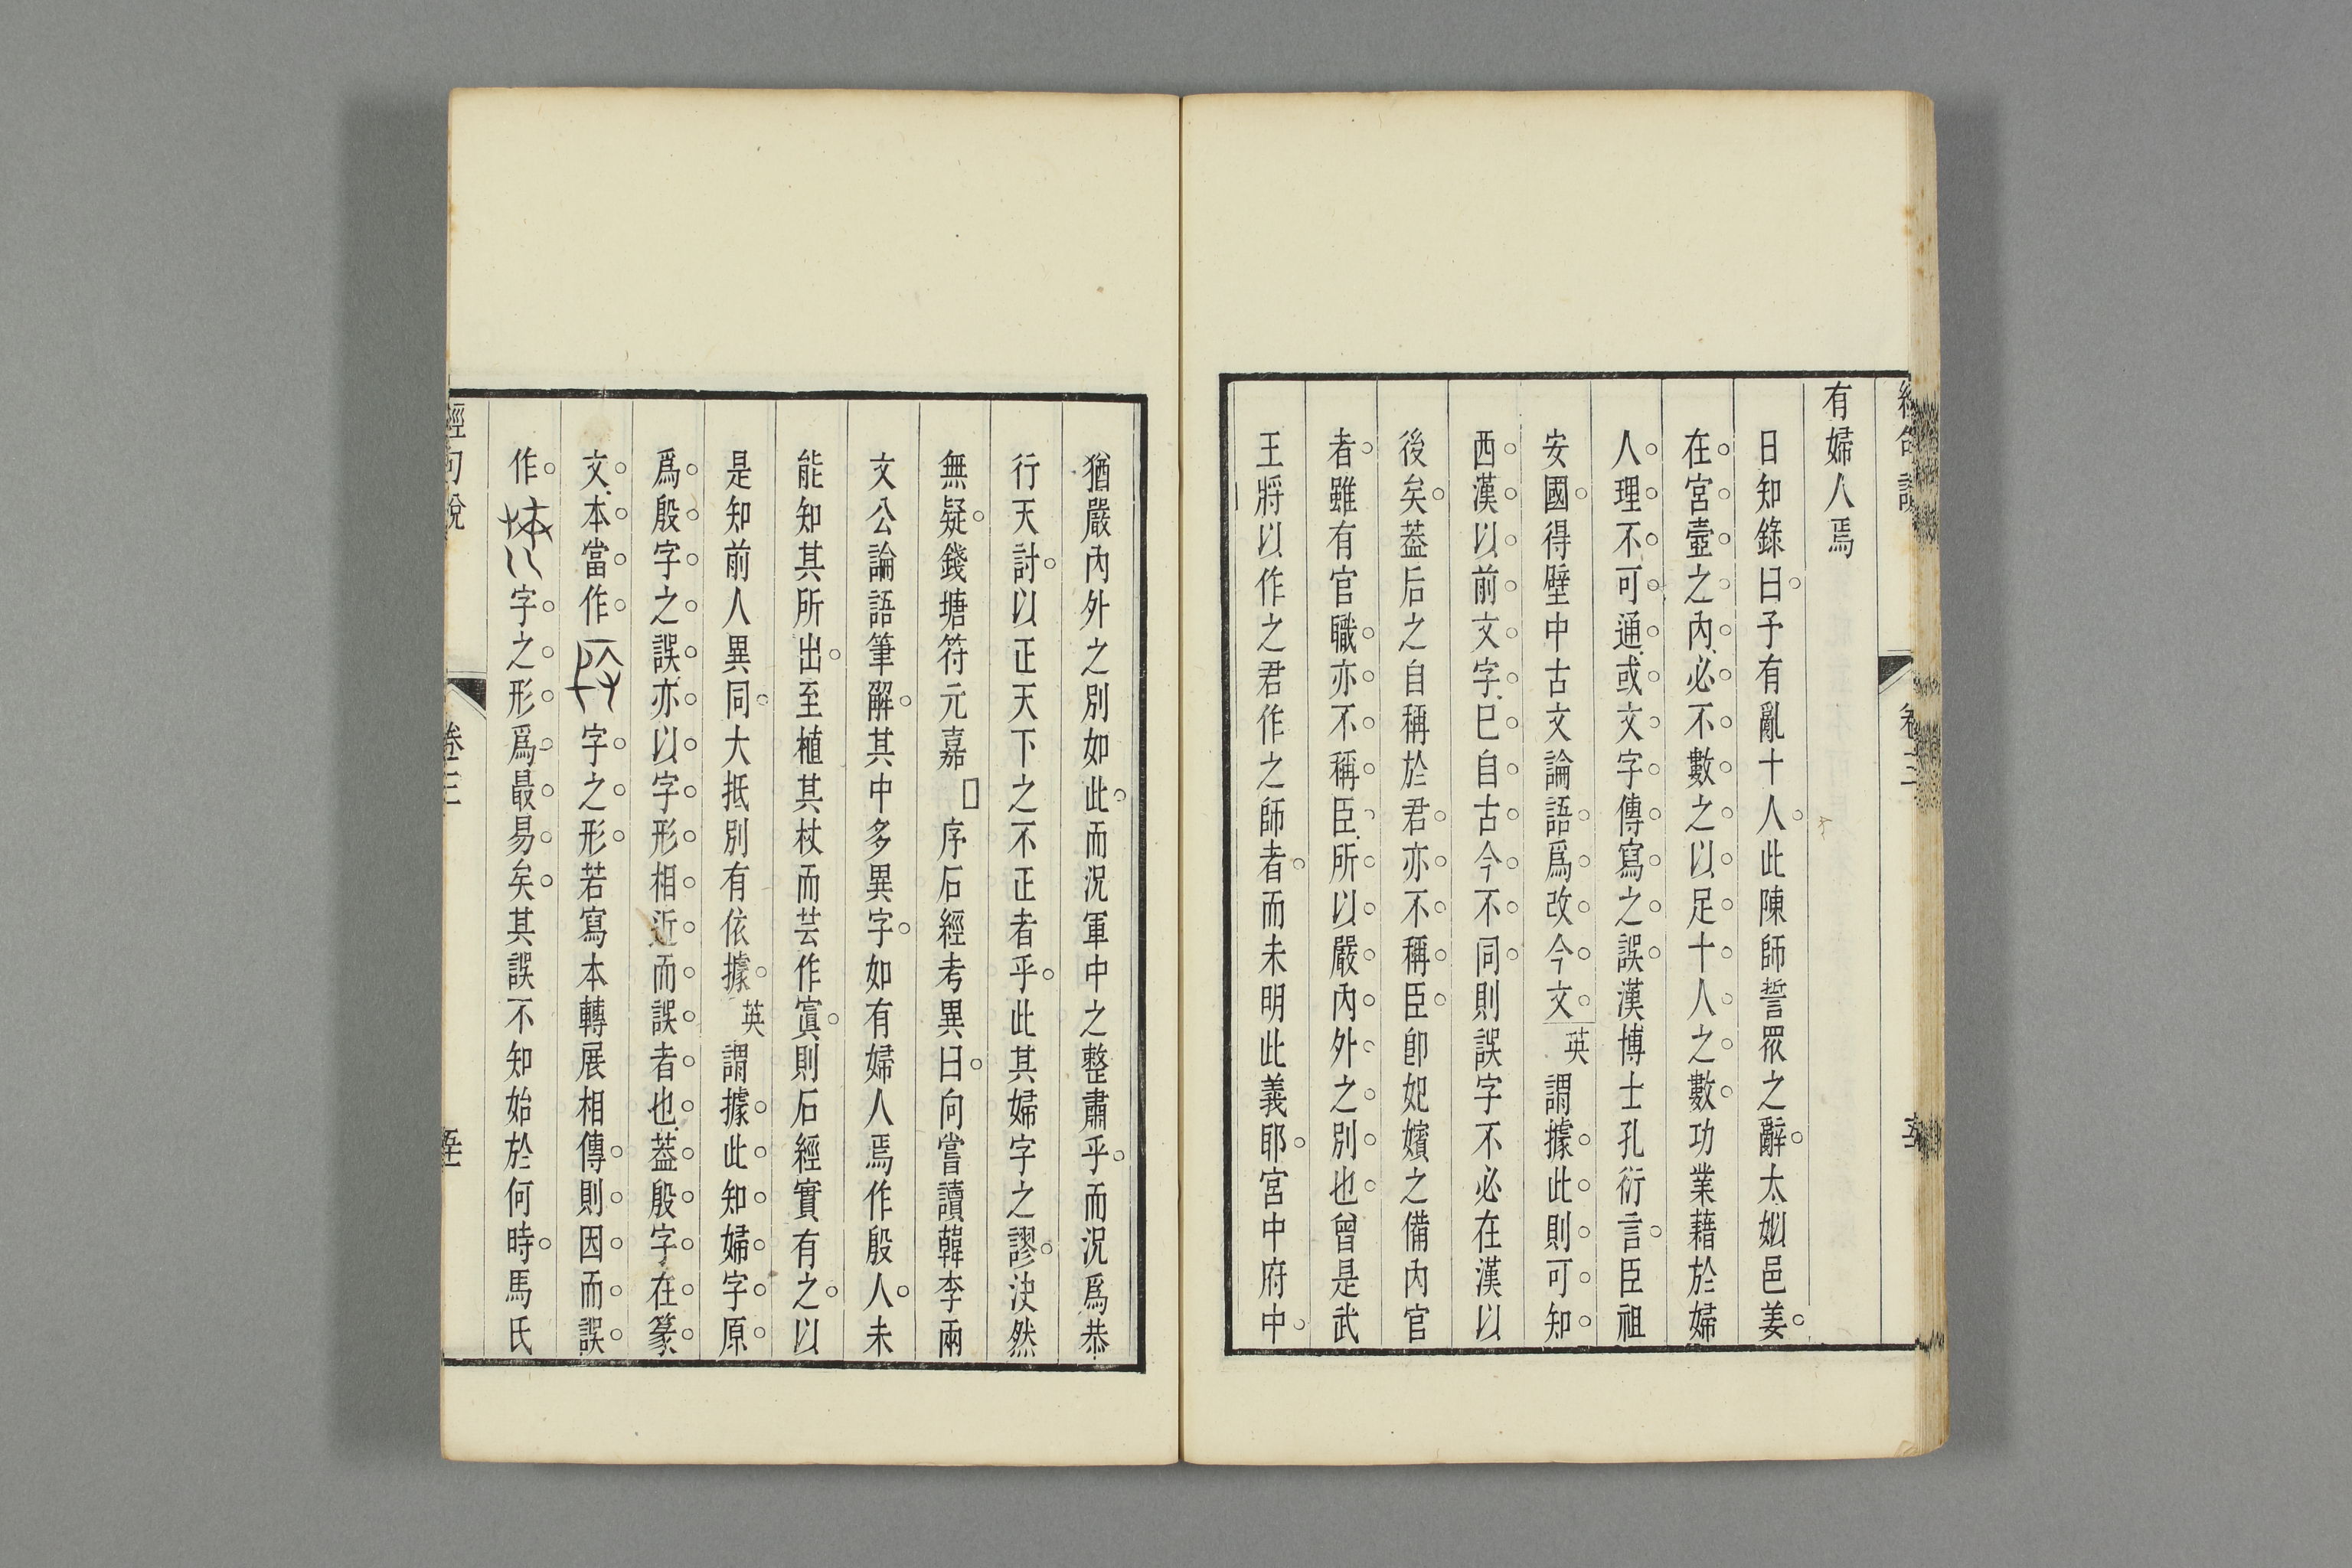 有婦人焉
日知錄曰予有亂十人此陳師誓眾之辭太姒邑姜
在宮壼之內必不數之以足十人之數功業藉於婦
人理不可通或文字傳寫之誤漢博士孔衍言臣祖
安國得壁中古文論語爲改今文英謂據此則可知
西漢以前文字巳自古今不同則誤字不必在漢以
後矣葢后之自稱於君亦不稱臣卽妃嬪之備內官
者雖有官職亦不稱臣所以嚴內外之別也曾是武
王將以作之君作之師者而未明此義耶宮中府中
猶嚴內外之別如此而況軍中之整肅乎而況爲恭
行天討以正天下之不正者乎此其婦字之謬決然
無疑錢塘符元嘉序石經考異曰向嘗讀韓李兩
文公論語筆解其中多異字如有婦人焉作殷人未
能知其所出至植其杖而芸作寘則石經實有之以
是知前人異同大抵別有依據英謂據此知婦字原
爲殷字之誤亦以字形相近而誤者也葢殷字在篆
文本當作字之形若寫本轉展相傳則因而誤
作字之形爲最易矣其誤不知始於何時馬氏
經句說
卷三